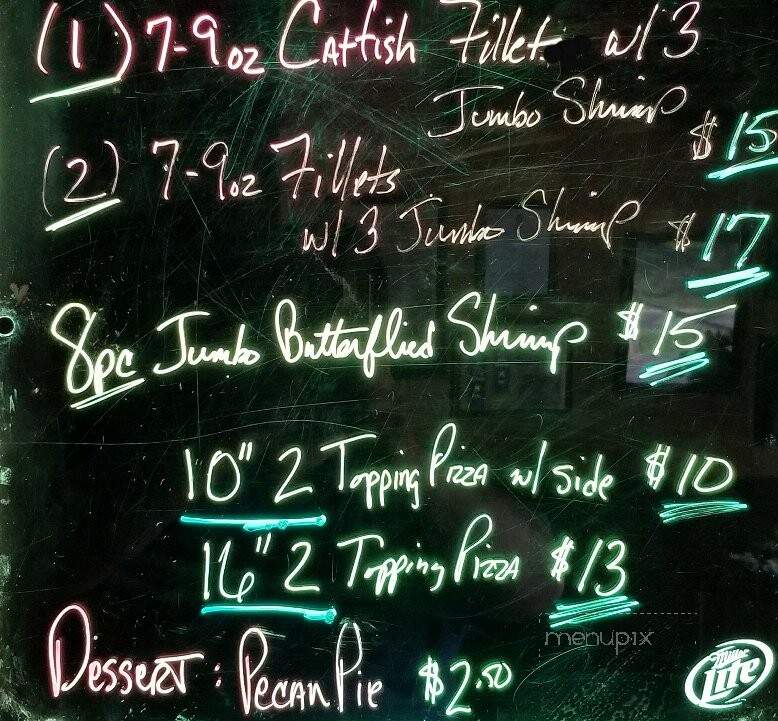 (1) 7-9oz Catfish Fillet w/3
Jumbo Shrimp $15
(2) 7-9oz Fillets
w/3 Jumbo Shrimp $17
8pc Jumbo Butterflied Shrimp $15
10" 2 Topping Pizza w/ side $10
16" 2 Topping Pizza $13
menupix
Dessert: Pecan Pie $2.50
Miller Lite